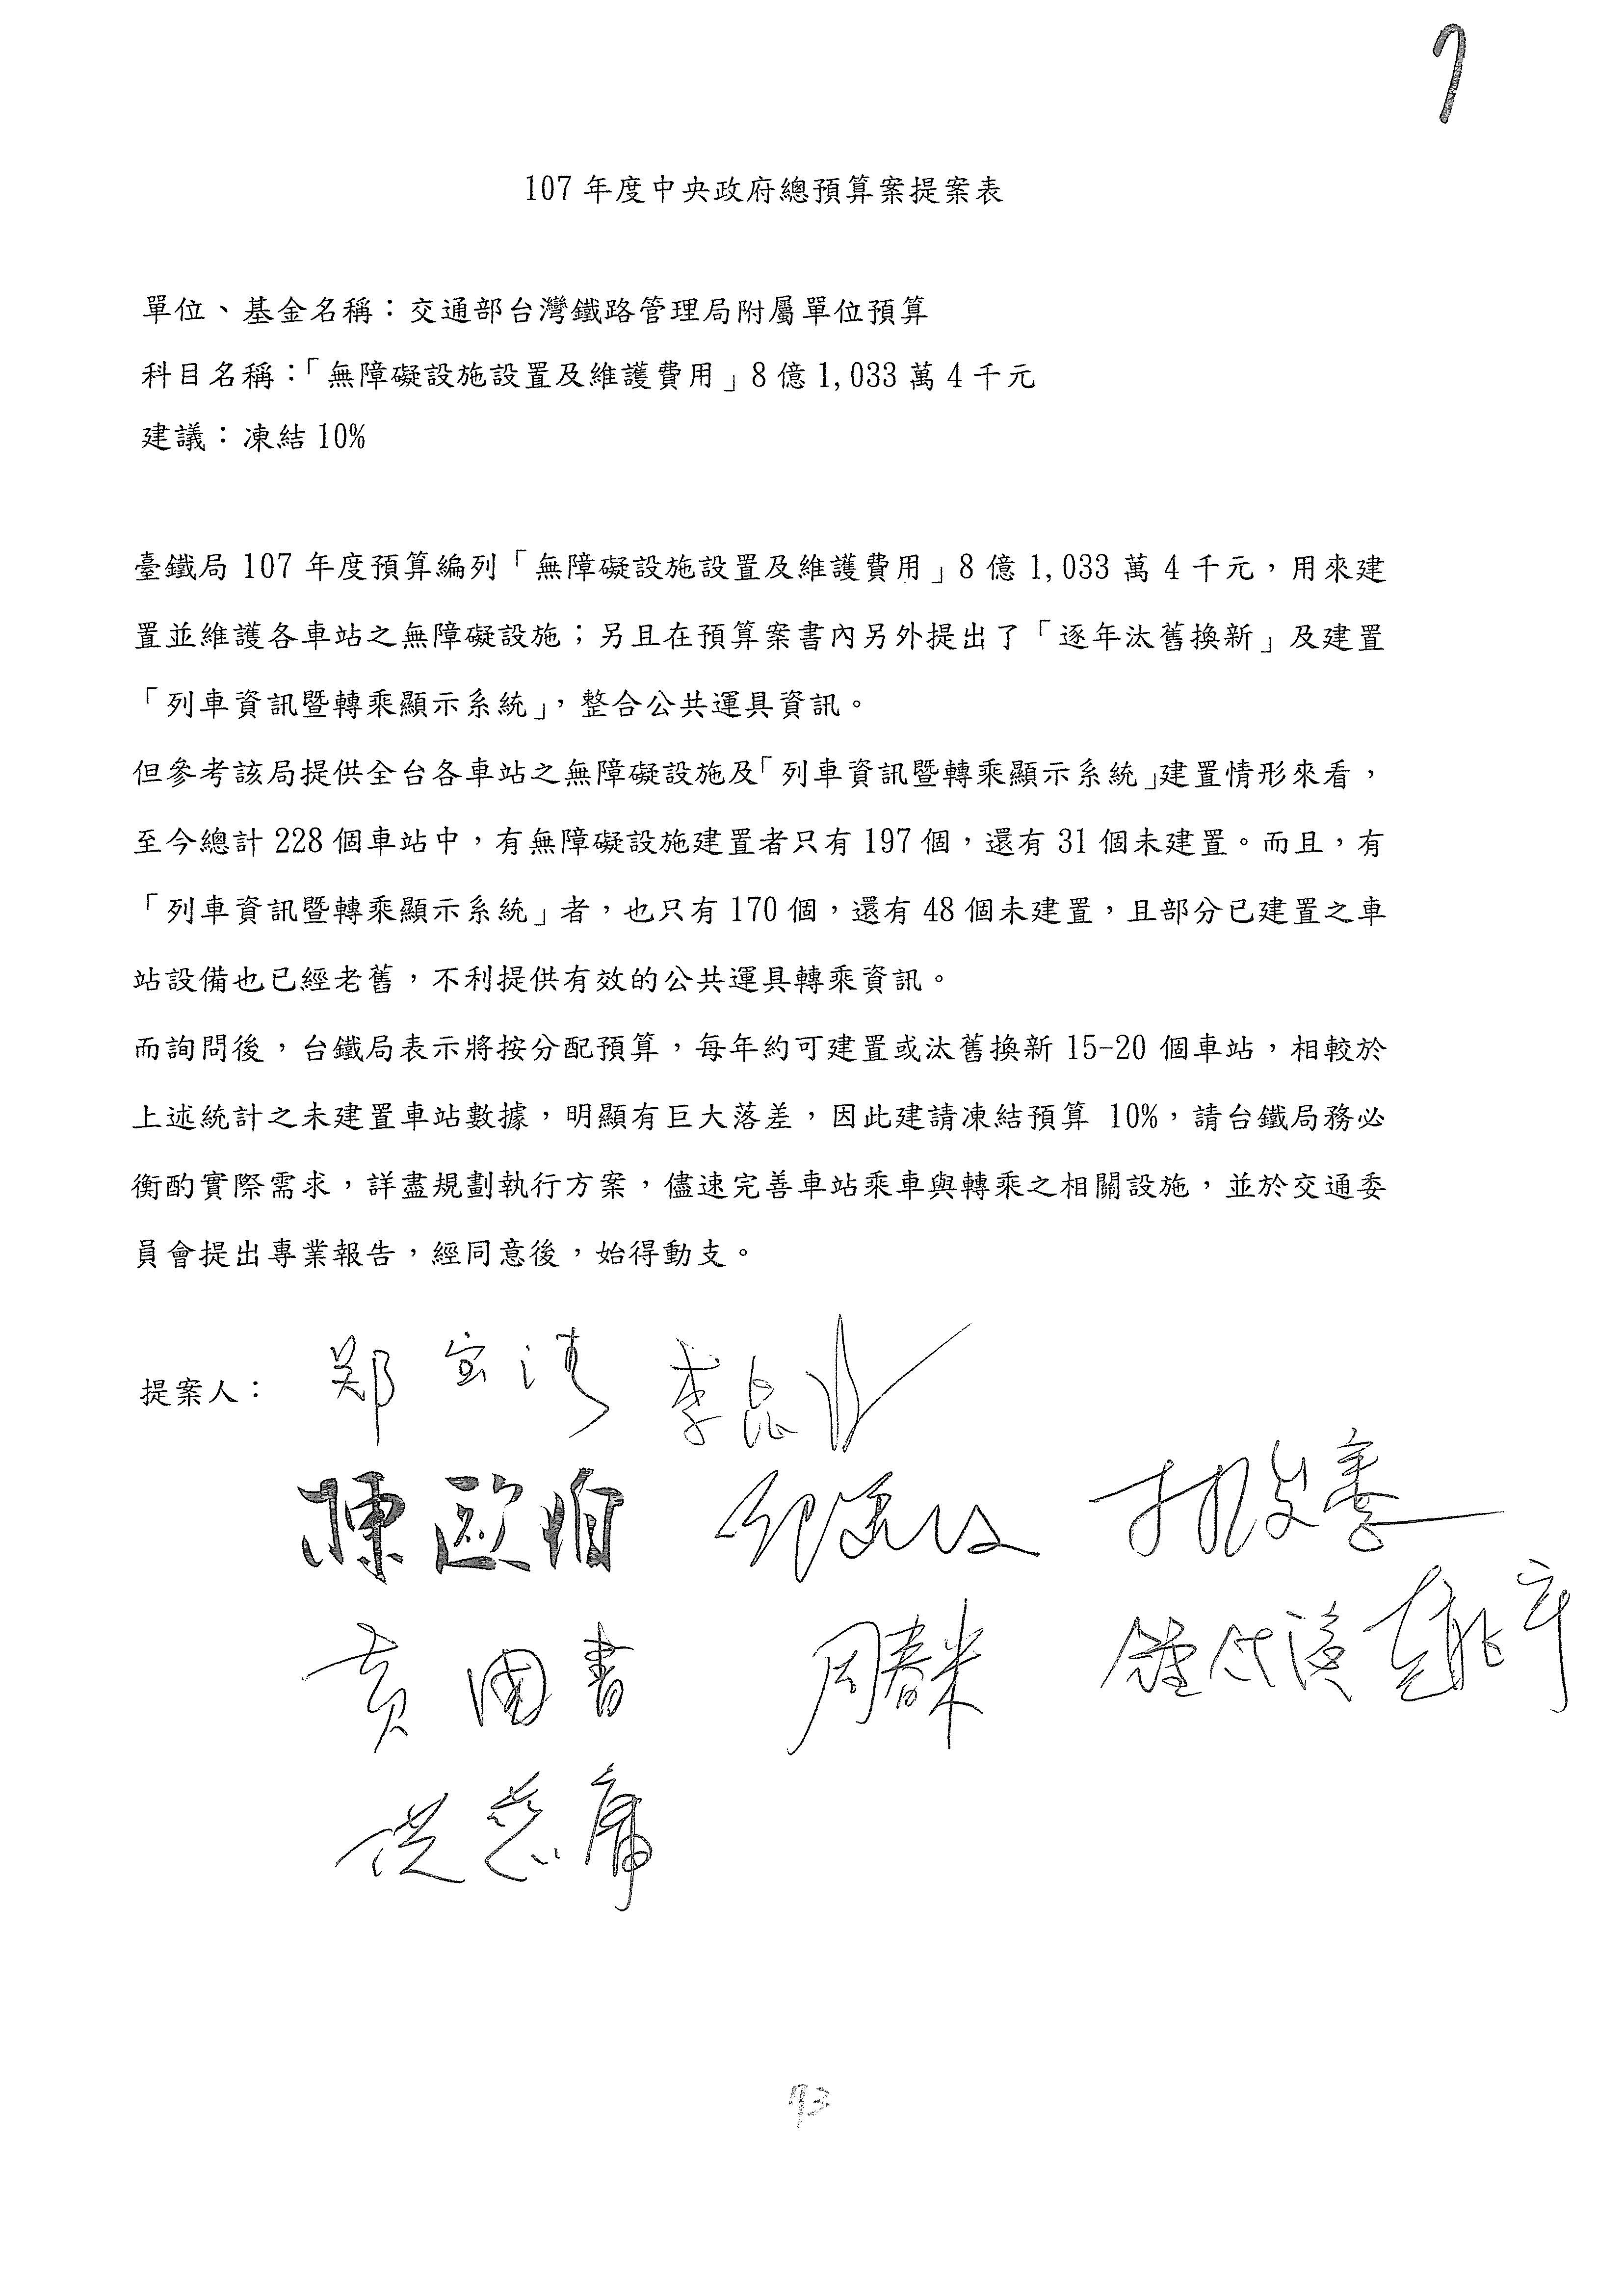 7
107 年度中央政府總預算案提案表
單位、基金名稱：交通部台灣鐵路管理局附屬單位預算
科目名稱：「無障礙設施設置及維護費用」8 億 1,033 萬 4 千元
建議：凍結 10%
臺鐵局 107 年度預算編列「無障礙設施設置及維護費用」8 億 1,033 萬 4 千元，用來建
置並維護各車站之無障礙設施；另且在預算案書內另外提出了「逐年汰舊換新」及建置
「列車資訊暨轉乘顯示系統」，整合公共運具資訊。
但參考該局提供全台各車站之無障礙設施及「列車資訊暨轉乘顯示系統」建置情形來看，
至今總計 228 個車站中，有無障礙設施建置者只有 197 個，還有 31 個未建置。而且，有
「列車資訊暨轉乘顯示系統」者，也只有 170 個，還有 48 個未建置，且部分已建置之車
站設備也已經老舊，不利提供有效的公共運具轉乘資訊。
而詢問後，台鐵局表示將按分配預算，每年約可建置或汰舊換新 15-20 個車站，相較於
上述統計之未建置車站數據，明顯有巨大落差，因此建請凍結預算 10%，請台鐵局務必
衡酌實際需求，詳盡規劃執行方案，儘速完善車站乘車與轉乘之相關設施，並於交通委
員會提出專業報告，經同意後，始得動支。
提案人： 鄭宝清 李昆泽
陳歐珀
黃國書 周春米 鍾佳濱 趙正宇
洪慈庸
73